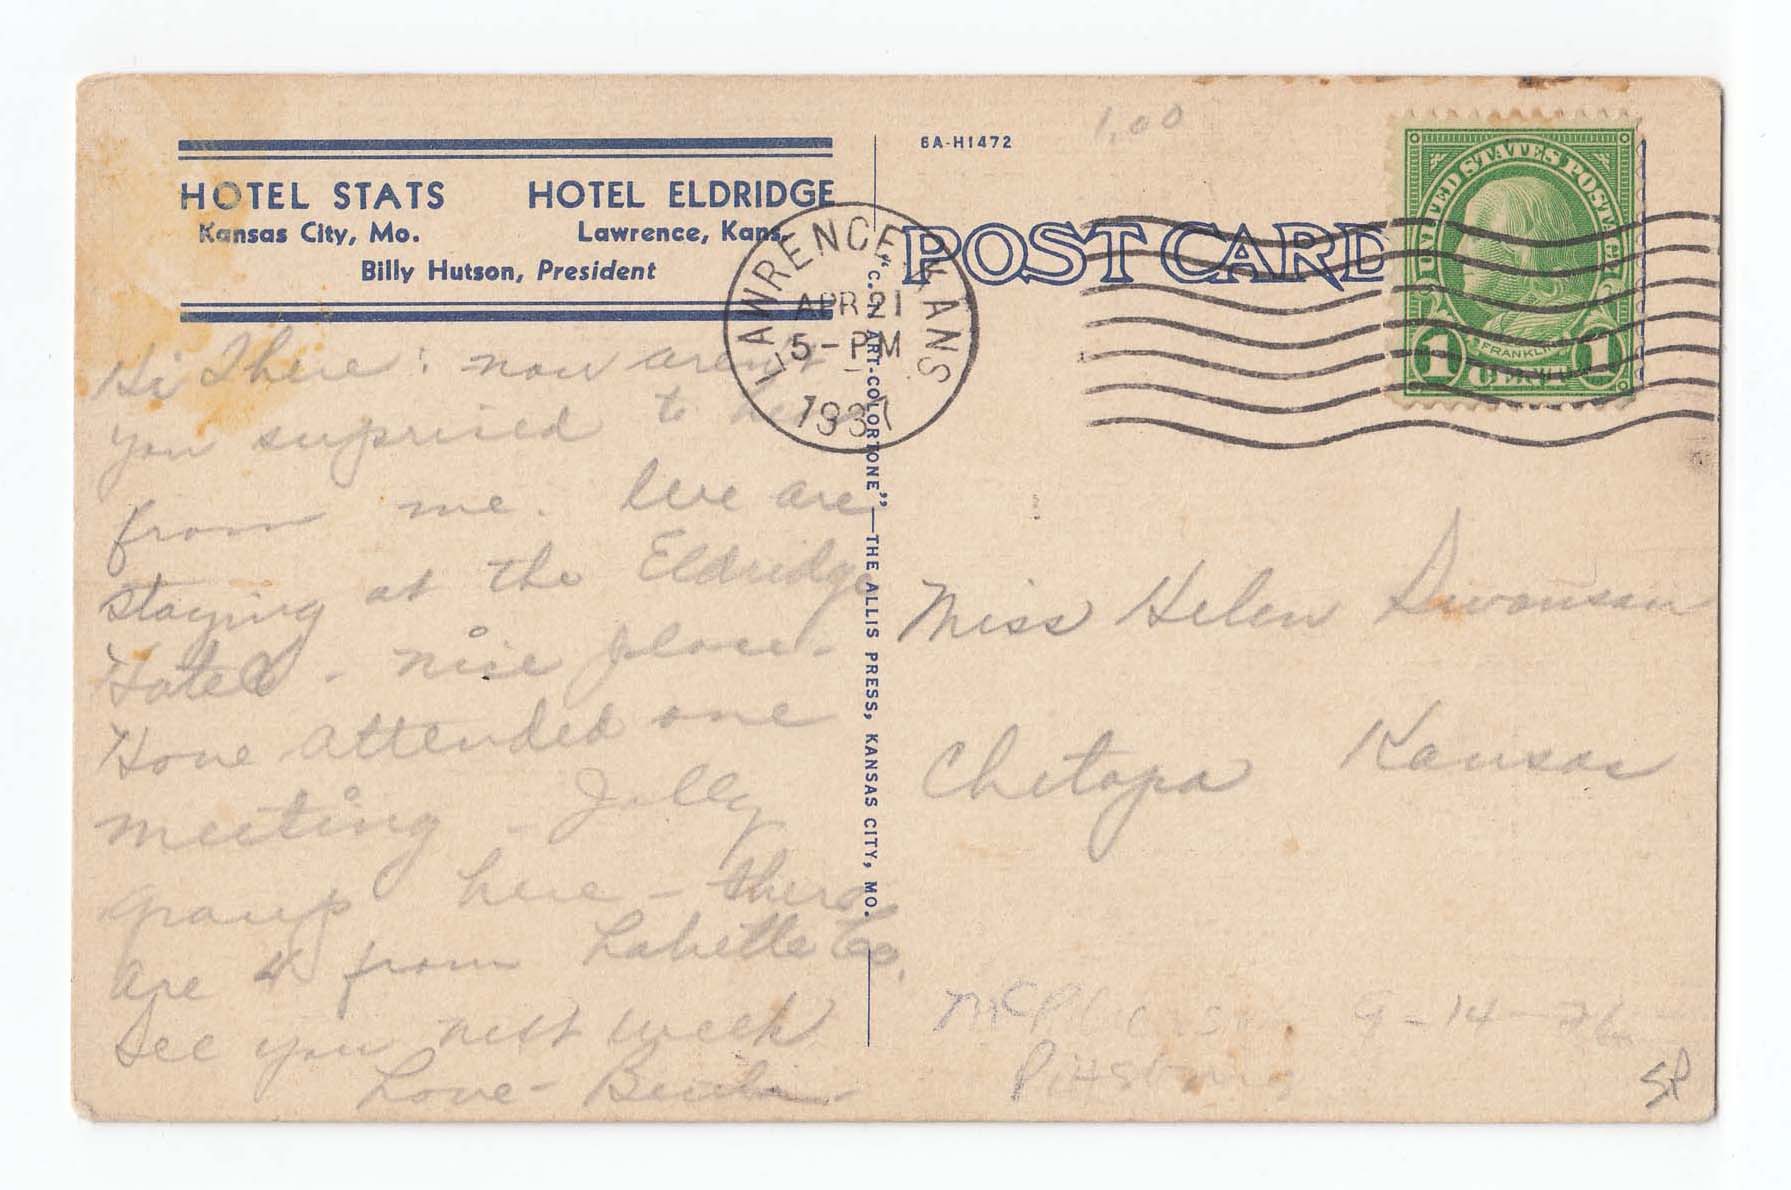 HOTEL STATS HOTEL ELDRIDGE
Kansas City, Mo. Lawrence, Kans.
Billy Hutson, President
6A-H1472
1.00
POST CARD
LAWRENCE KANS
APR 21
5-PM
1937
UNITED STATES POSTAGE
FRANKLIN
1 CENT 1
"C.T. ART-COLORTONE"—THE ALLIS PRESS, KANSAS CITY, MO.
Hi There: now aren't
you suprised to hear
from me. We are
staying at the Eldridge
Hotel - nice place -
Have attended one
meeting - Jolly
group here - there
are 4 from Labette Co.
See you next week
Love -
Miss Helen Swanson
Chetopa Kansas
9-14-26
Pittsburg
SP